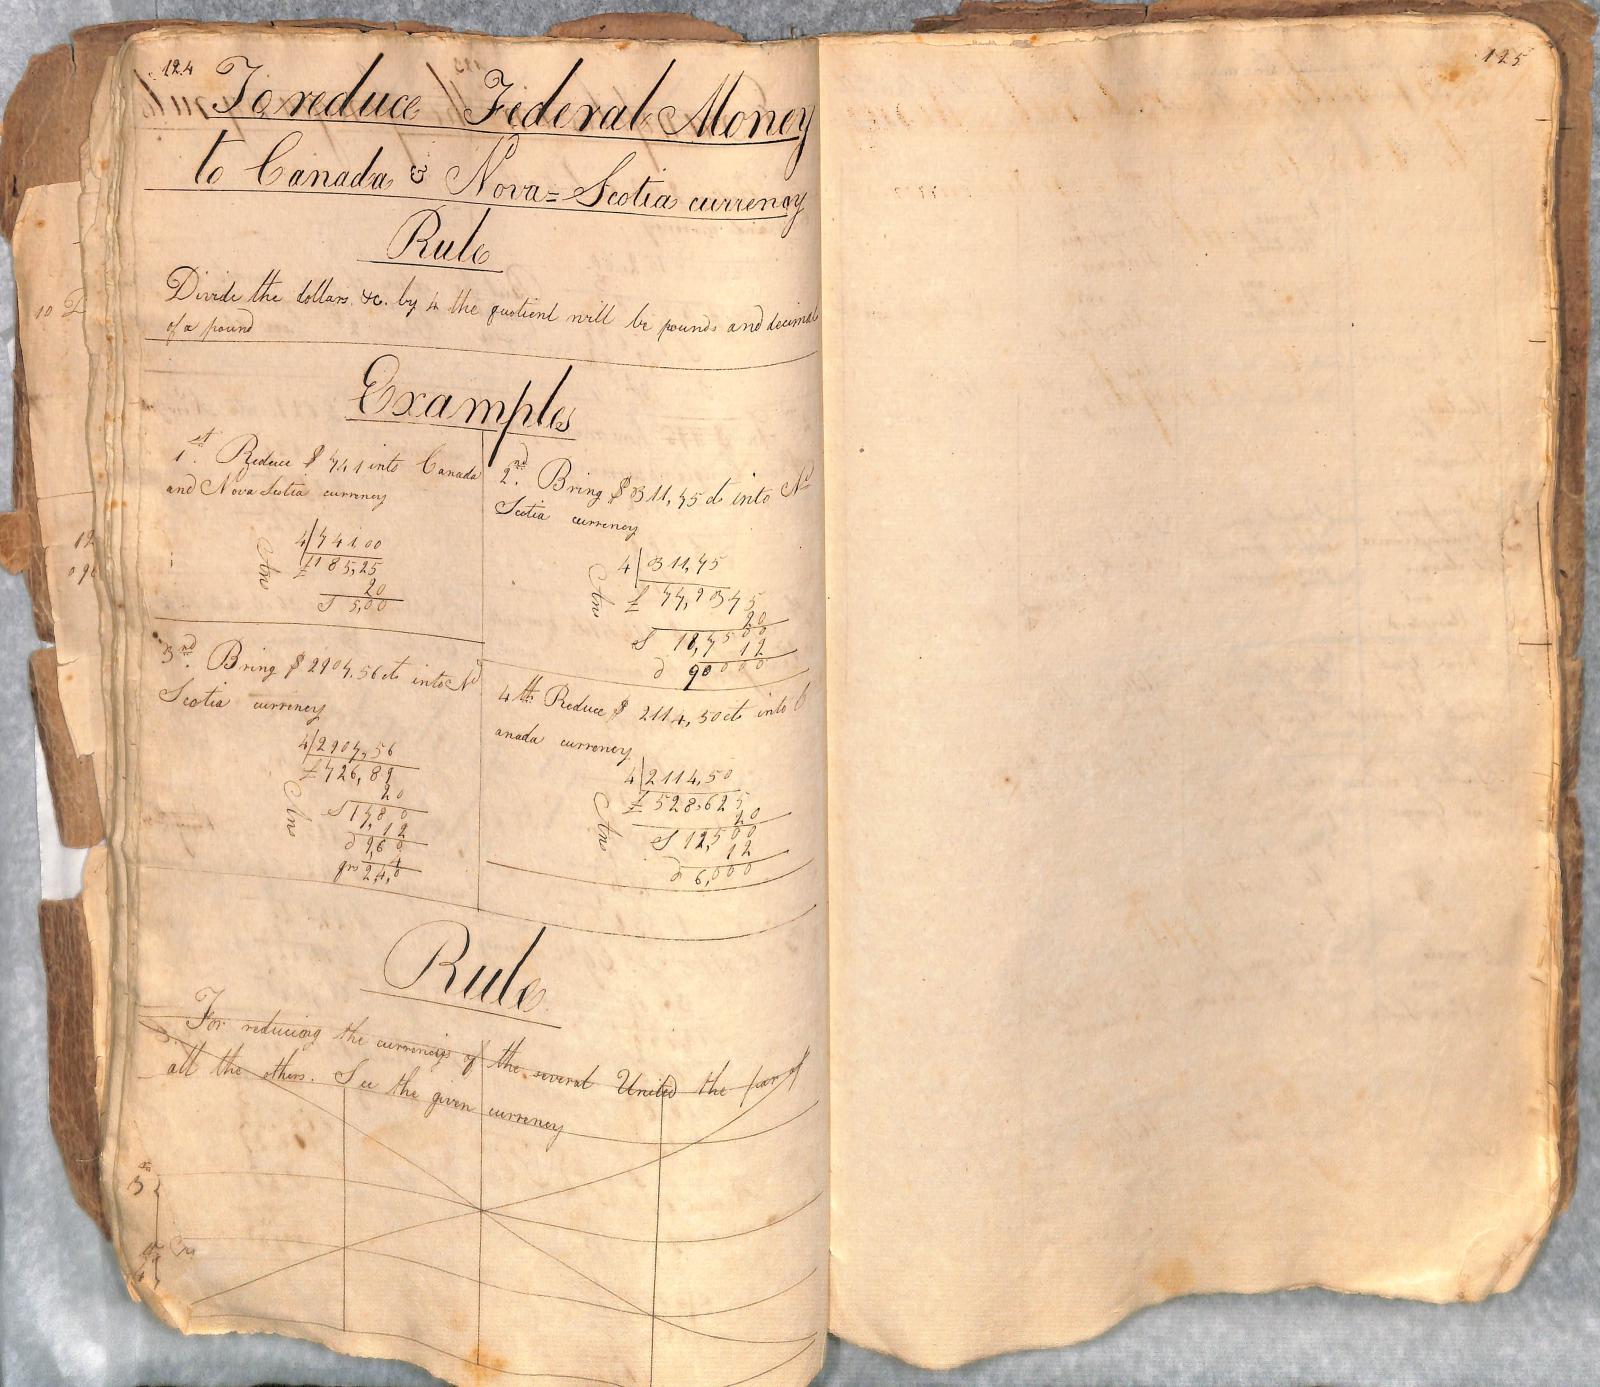 124
To reduce Federal Money
to Canada & Nova=Scotia currency
Rule
Divide the dollars &c. by 4 the quotient will be pounds and decimal
of a pound
Examples
1st. Reduce $ 741 into Canada
and Nova Scotia currency
4/74100
£185,25
20
S 5,00
Ans
2nd. Bring $ 311,75 cts into Na
Scotia currency
4|311,75
£ 77,9375
20
S 18,7500
12
d 90000
Ans
3rd. Bring $ 2907,56 cts into Na
Scotia currency
4/2907,56
£726,89
20
S 17,80
12
d 9,60
4
qrs 2,4,0
Ans
4th Reduce $ 2114,50 cts into C
anada currency
4|2114,50
£ 528,625
20
S 12,500
12
d 6,000
Ans
Rule
For reducing the currencys of the several United the par of
all the others. See the given currency
125
10 D
12